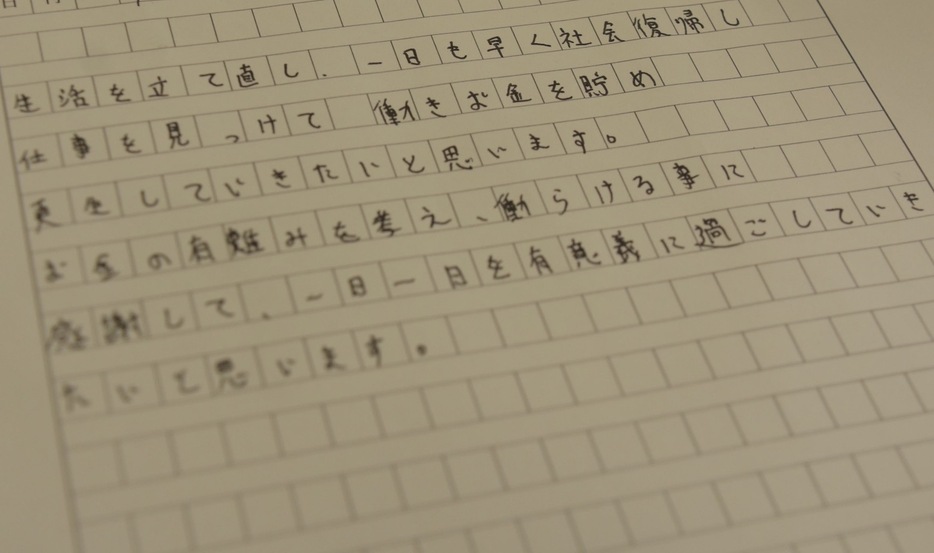 生活を立て直し、一日も早く社会復帰し
仕事を見つけて 働きお金を貯め
更生していきたいと思います。
お金の有難みを考え、働らける事に
感謝して、一日一日を有意義に過ごしていき
たいと思います。